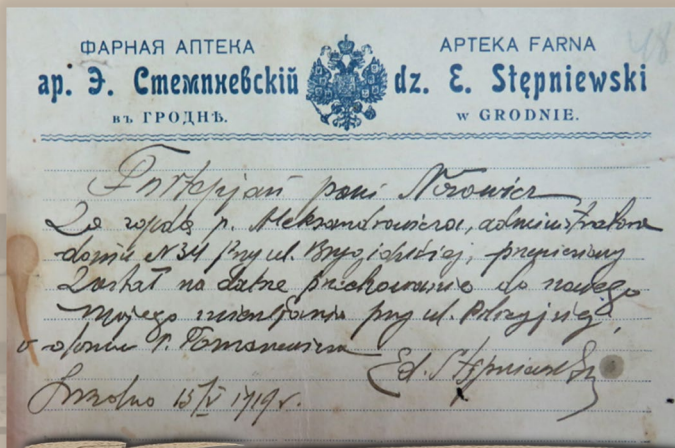 48
ФАРНАЯ АПТЕКА
ар. Э. Стемпневскій
въ ГРОДНѢ.
APTEKA FARNA
dz. E. Stępniewski
w GRODNIE.
Fortepjan pani Nirowicz
Za zgodą p. Aleksandrowicza, administratora
domu N34 przy ul. Brygidzkiej, przeniesiony
został na dalsze przechowanie do nowego
mojego mieszkania przy ul. Policyjnej,
w domu p. Tomaszewicza
Ed. Stępniewski
Grodno 15/V 1919 r.